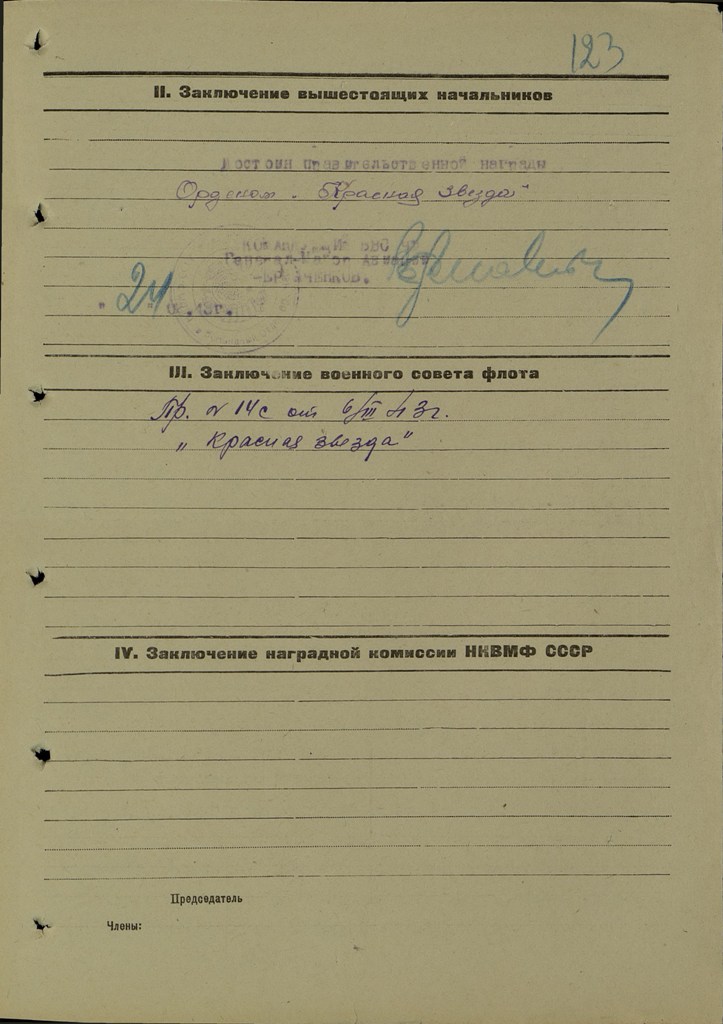 123
II. Заключение вышестоящих начальников
Достоин правительственной награды
Орденом „Красная звезда"
ВВС
Генерал-Майор Авиации
"24" 02.43г.
III. Заключение военного совета флота
Пр. № 14с от 6/III 43г.
„Красная звезда"
IV. Заключение наградной комиссии НКВМФ СССР
Председатель
Члены: